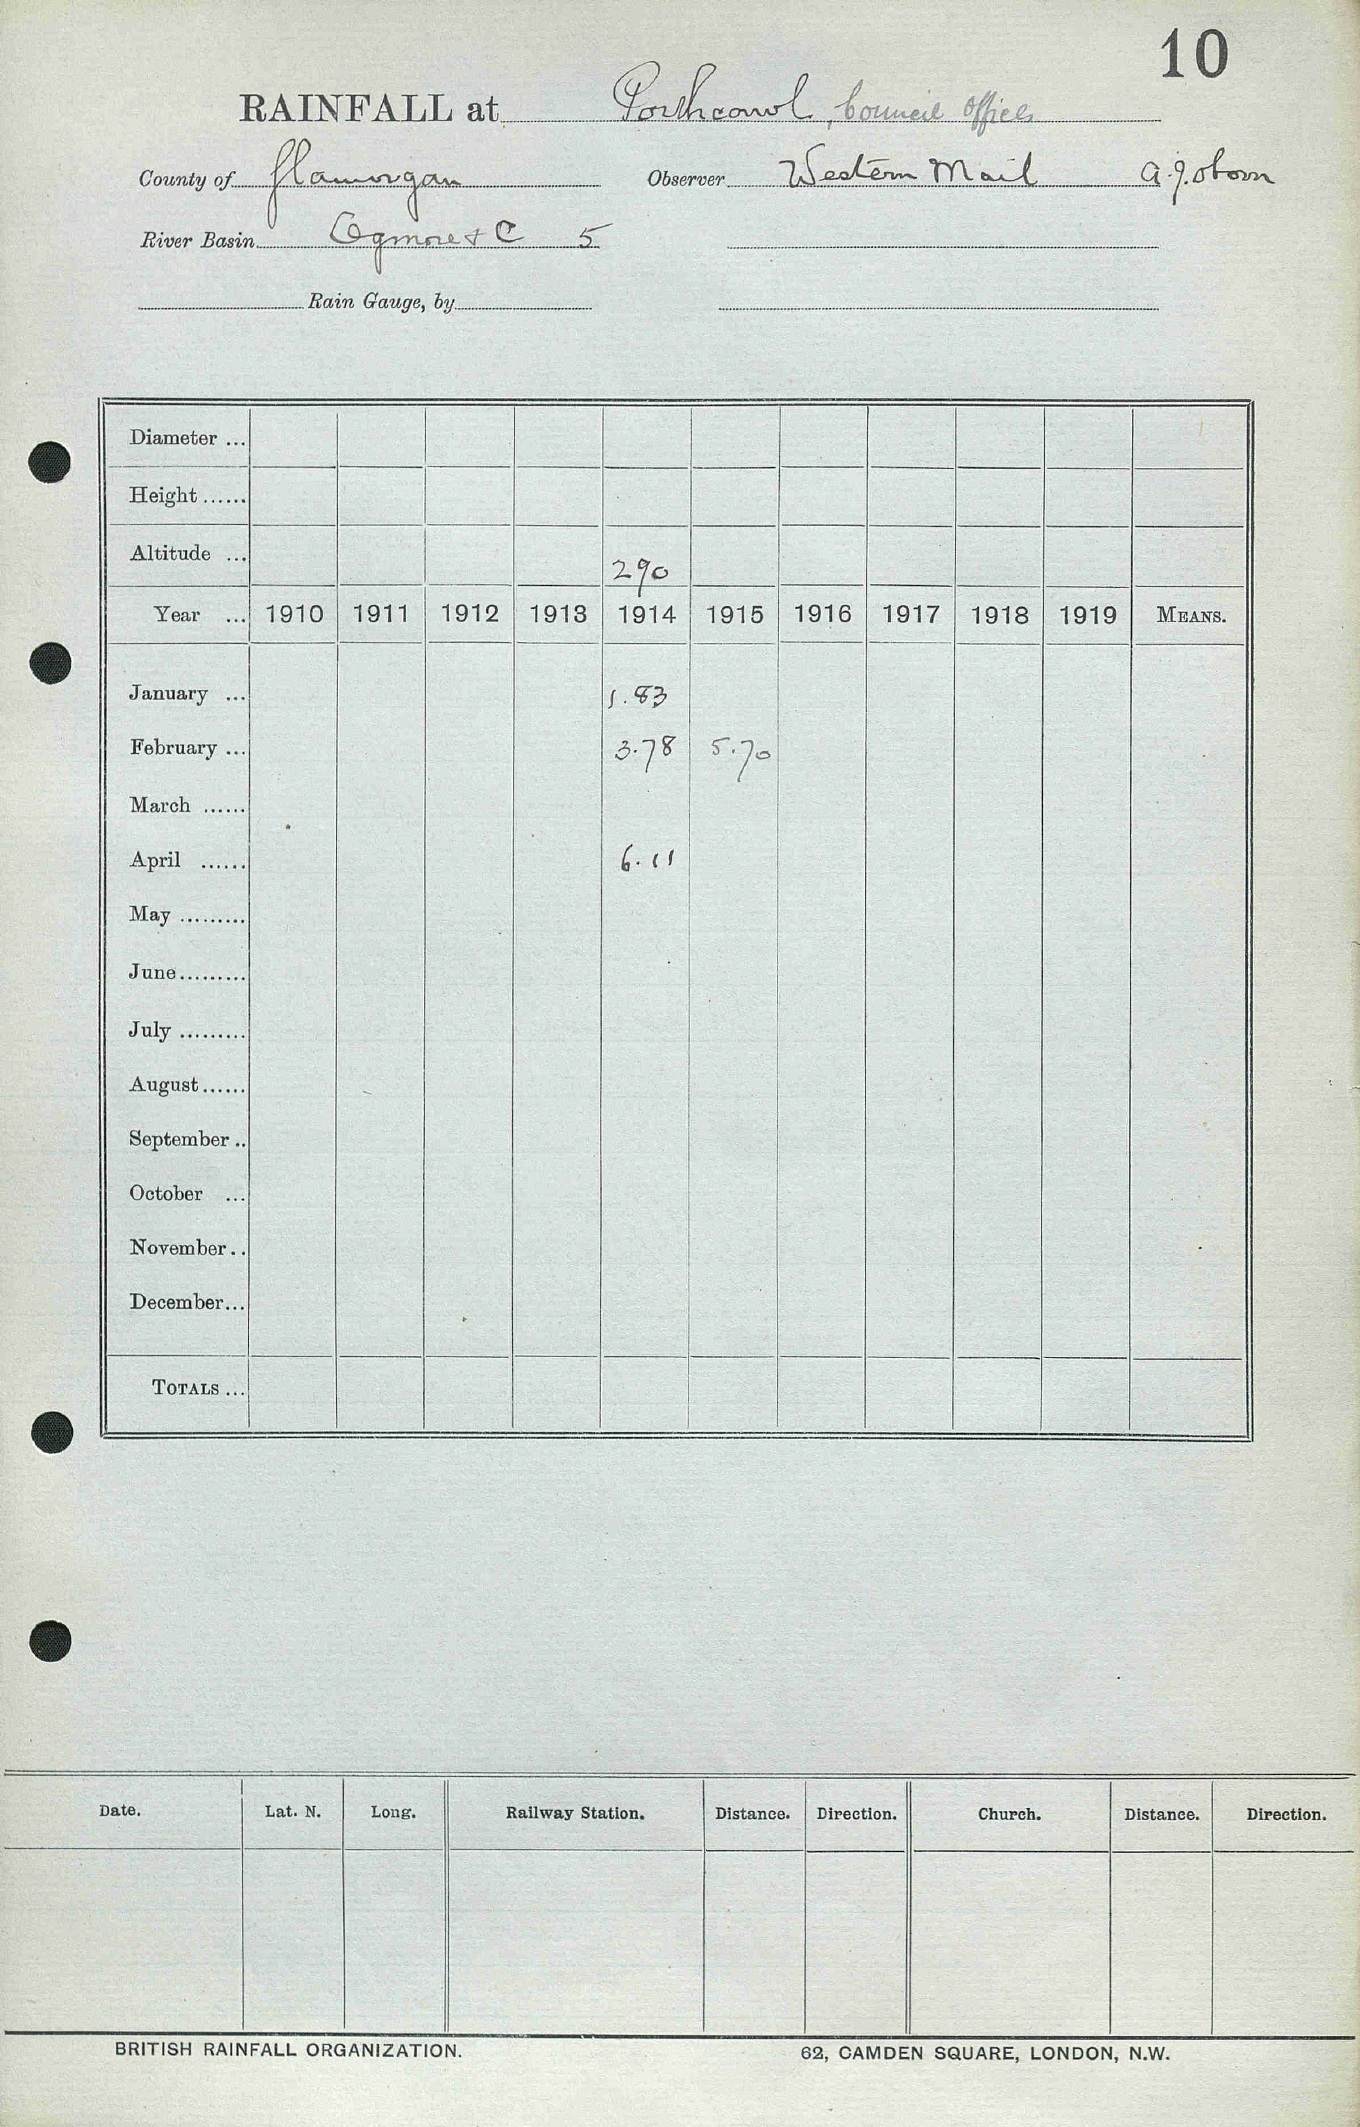 10
RAINFALL at Porthcawl, Council Offices
County of Glamorgan Observer Western Mail A. J. Oborn
River Basin Ogmore & C 5
Rain Gauge, by
Diameter ...
Height ......
Altitude ... 290
Year ... 1910 1911 1912 1913 1914 1915 1916 1917 1918 1919 MEANS.
January ... 1.83
February ... 3.78 5.70
March ......
April ...... 6.11
May .........
June.........
July .........
August......
September ..
October ...
November..
December...
TOTALS ...
Date. Lat. N. Long. Railway Station. Distance. Direction. Church. Distance. Direction.
BRITISH RAINFALL ORGANIZATION. 62, CAMDEN SQUARE, LONDON, N.W.